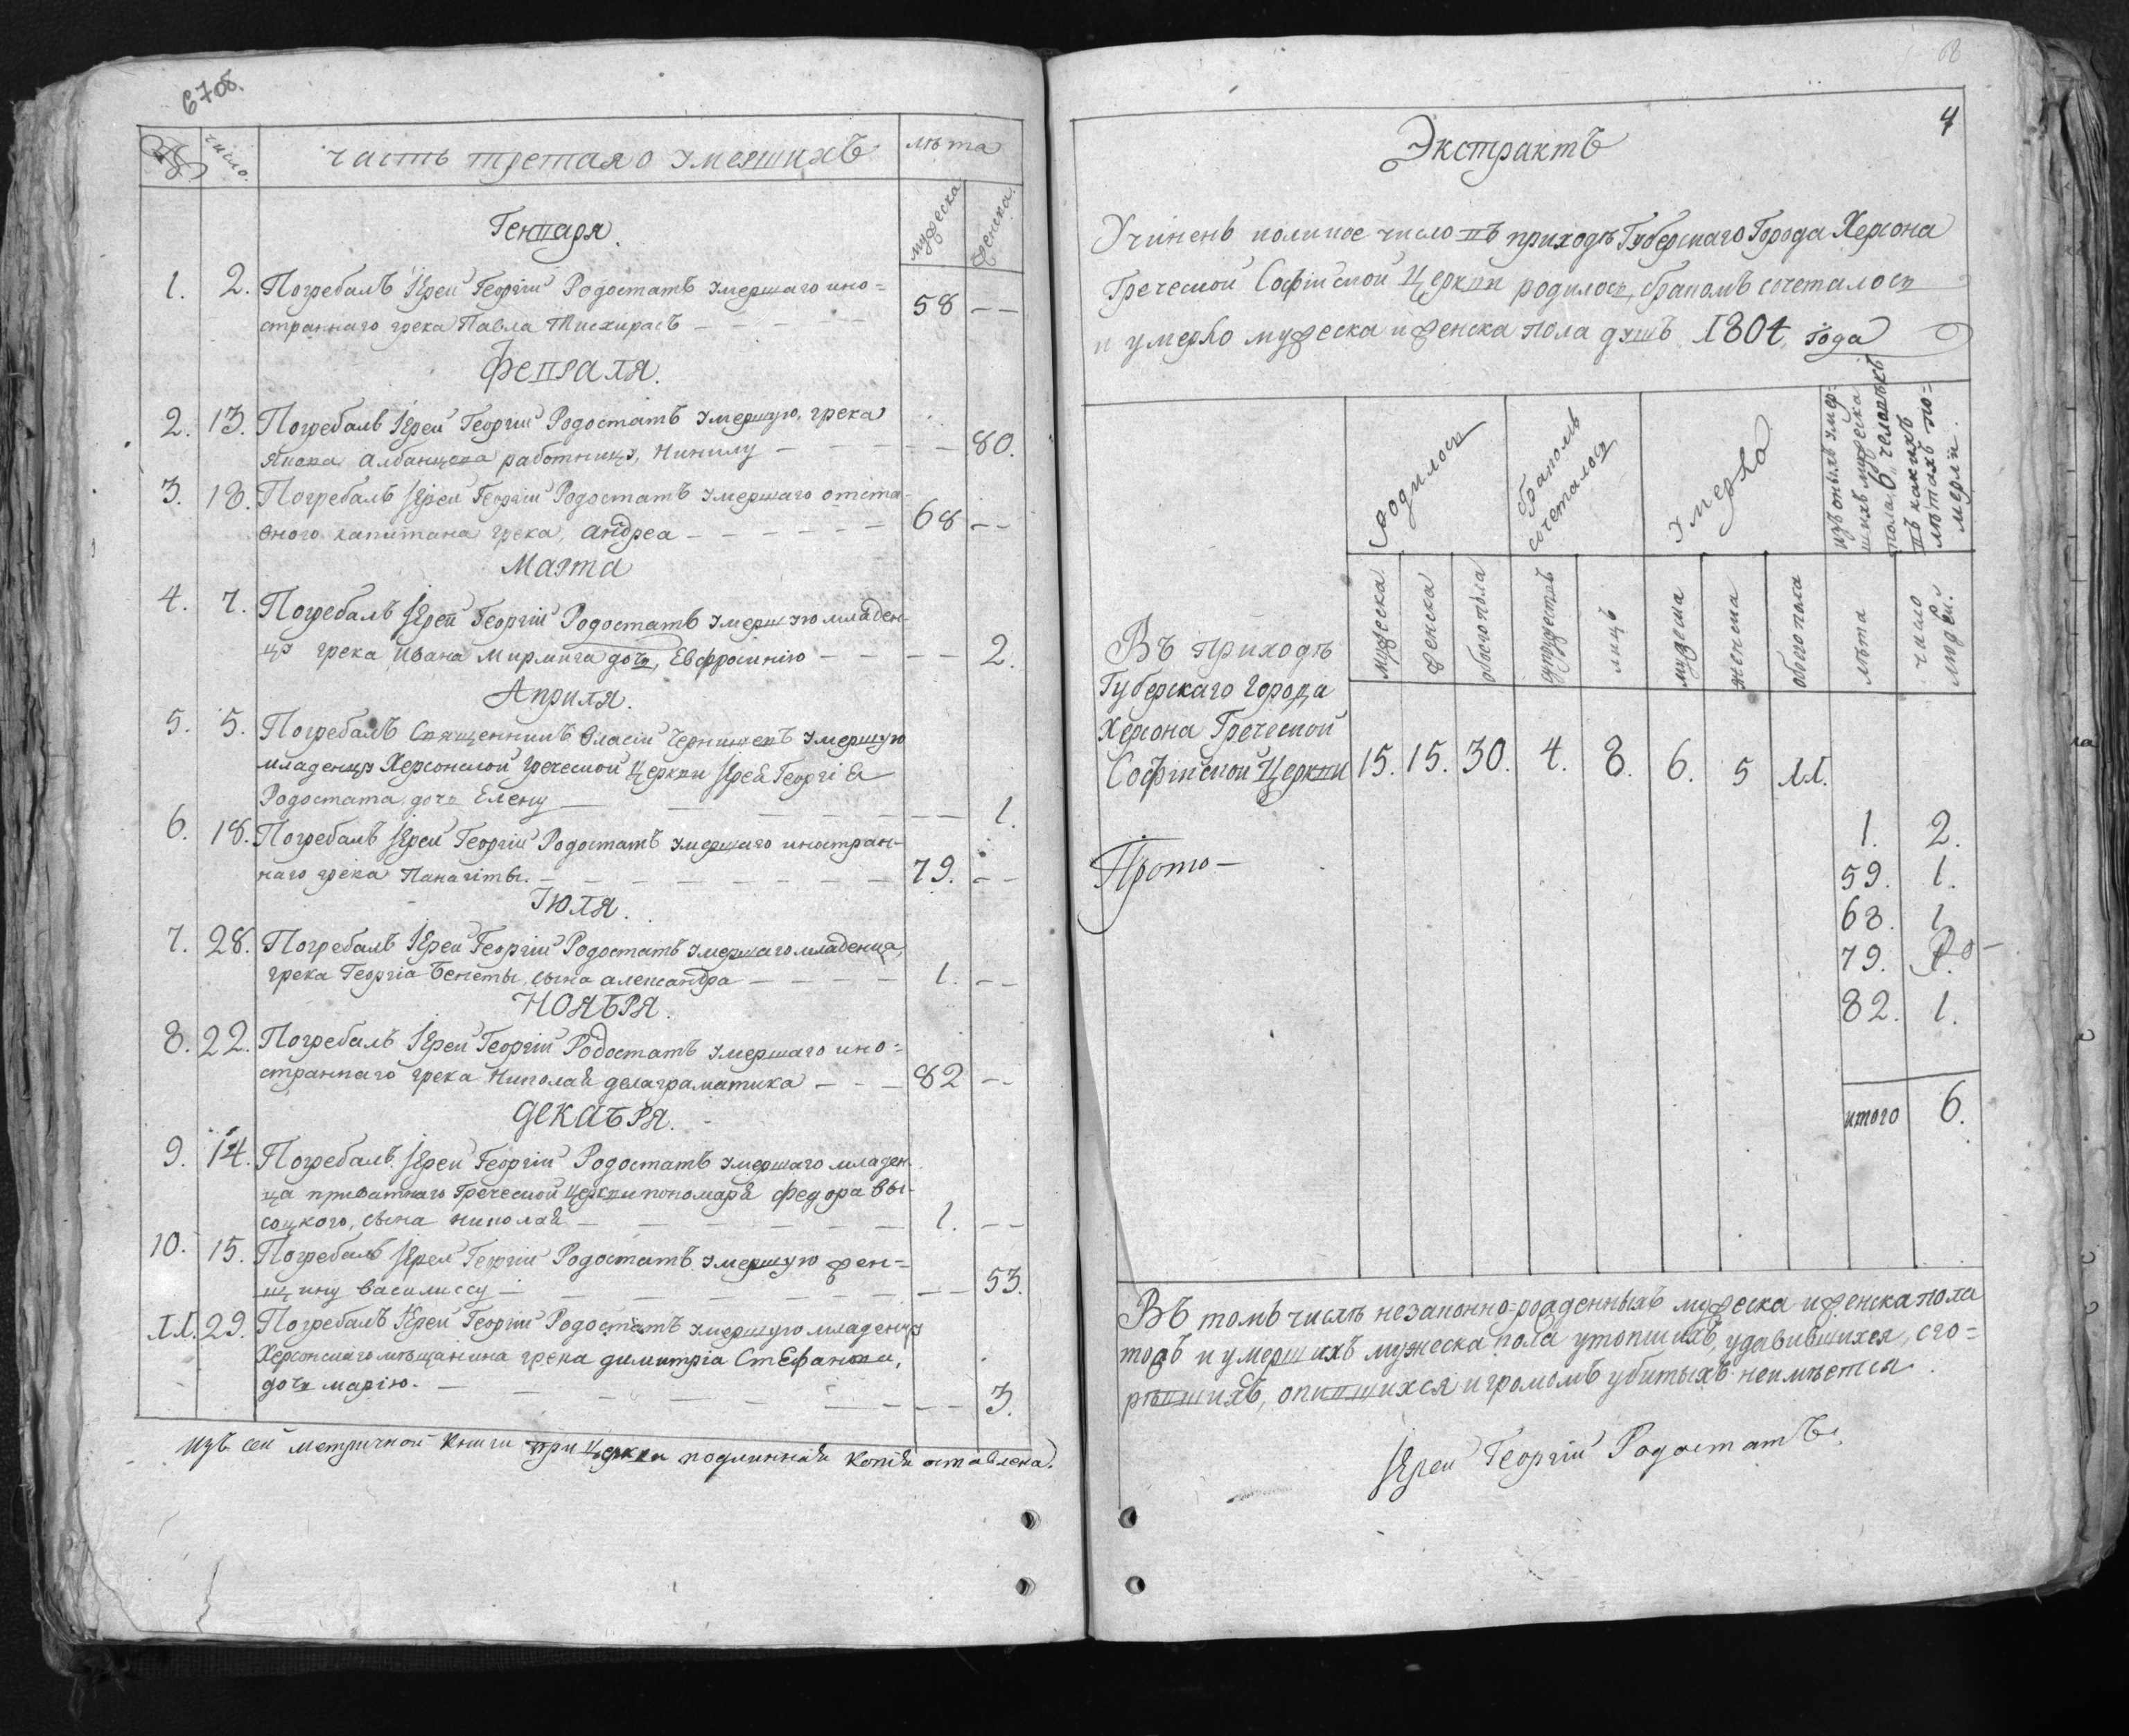 6708.
число.
часть третая о умершихъ
лѣта
мужеска
женска.
Генваря.
1. 2. Погребалъ Іерей Георгій Родостатъ умершаго ино=
страннаго грека Павла Тискирасъ — — — — — 58 — —
Февраля.
2. 13. Погребалъ Іерей Георгій Родостатъ умершую, грека
Янека Албанцова работницу, Нинилу — — — — — 80.
3. 18. Погребалъ Іерей Георгій Родостатъ умершаго отста-
вного капитана грека, андреа — — — — — — 68 — —
Марта
4. 7. Погребалъ Іерей Георгій Родостатъ умершую младен-
цу грека Ивана Мирмига дочь, Евфросинію — — — — 2.
Априля.
5. 5. Погребалъ Священникъ Власій Чернявскъ умершую
младенцу Херсонской греческой Церкви Іерея Георгія
Родостата дочь Елену — — — — — — — 1.
6. 18. Погребалъ Іерей Георгій Родостатъ умершаго иностран-
наго грека Панагіоты. — — — — — — — — 79. — —
Іюля.
7. 28. Погребалъ Іерей Георгій Родостатъ умершаго младенца,
грека Георгіа Бенеты, сына александра — — — — 1. — —
Ноября.
8. 22. Погребалъ Іерей Георгій Родостатъ умершаго ино=
страннаго грека Николая делаграматика — — — 82 — —
Декабря.
9. 14. Погребалъ Іерей Георгій Родостатъ умершаго младен
ца приватнаго Греческой церкви пономаря федора вы-
соцкого, сына николая — — — — — — 1. — —
10. 15. Погребалъ Іерей Георгій Родостатъ умершую жен=
щину василиссу — — — — — — — — — 53.
11. 29. Погребалъ Іерей Георгій Родостатъ умершую младенцу
Херсонскаго мѣщанина грека димитріа Стефанова,
дочь марію. — — — — — — — — — 3.
Изъ сей метричной книги при церкви подлинная копія оставлена.
4
Экстрактъ
Учиненъ коликое число въ приходѣ Губерскаго Города Херсона
Греческой Софійской Церкви родилось, бракомъ сочеталось
и умерло мужеска и женска пола душъ 1804 года
родилось
бракомъ сочеталось
умерло
изъ оныхъ умер-
шихъ мужеска
пола 6 человѣкъ
въ какихъ
лѣтахъ по=
мерли.
мужеска.
женска
обоего пола
супружествъ
лицъ
мужеска
женска
обоего пола
лѣта
число людей.
Въ приходѣ
Губерскаго города
Херсона Греческой
Софійской Церкви 15. 15. 30. 4. 8. 6. 5 11.
1. 2.
59. 1.
68. 1.
79. 1.
82. 1.
итого 6.
Прото-
Въ томъ числѣ незаконно-рожденныхъ мужеска и женска пола
тожъ и умершихъ мужеска пола утопшихъ, удавившихся, сго=
рѣвшихъ, опившихся и громомъ убитыхъ неимѣется
Іерей Георгій Родостатъ.